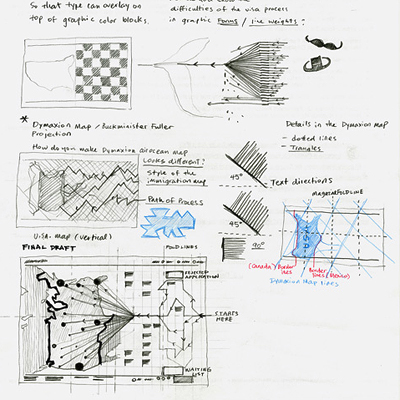 So that type can overlay on
top of graphic color blocks.
difficulties of the visa process
in graphic Forms / line weights?
* Dymaxion Map / Buckminister Fuller
Projection
How do you make Dymaxion airocean map
Looks different?
Style of the
immigration map
Path of Process
U.S.A. Map (vertical)
Details in the Dymaxion map
- dotted lines
- Triangles
45°
Text directions
45°
90°
MAGAZINE FOLD LINE
USA
(Canada) Border
lines
Border
lines (Mexico)
Dymaxion Map lines
FINAL DRAFT
FOLD LINES
REJECTED
APPLICATION
STARTS
HERE
WAITING
LIST